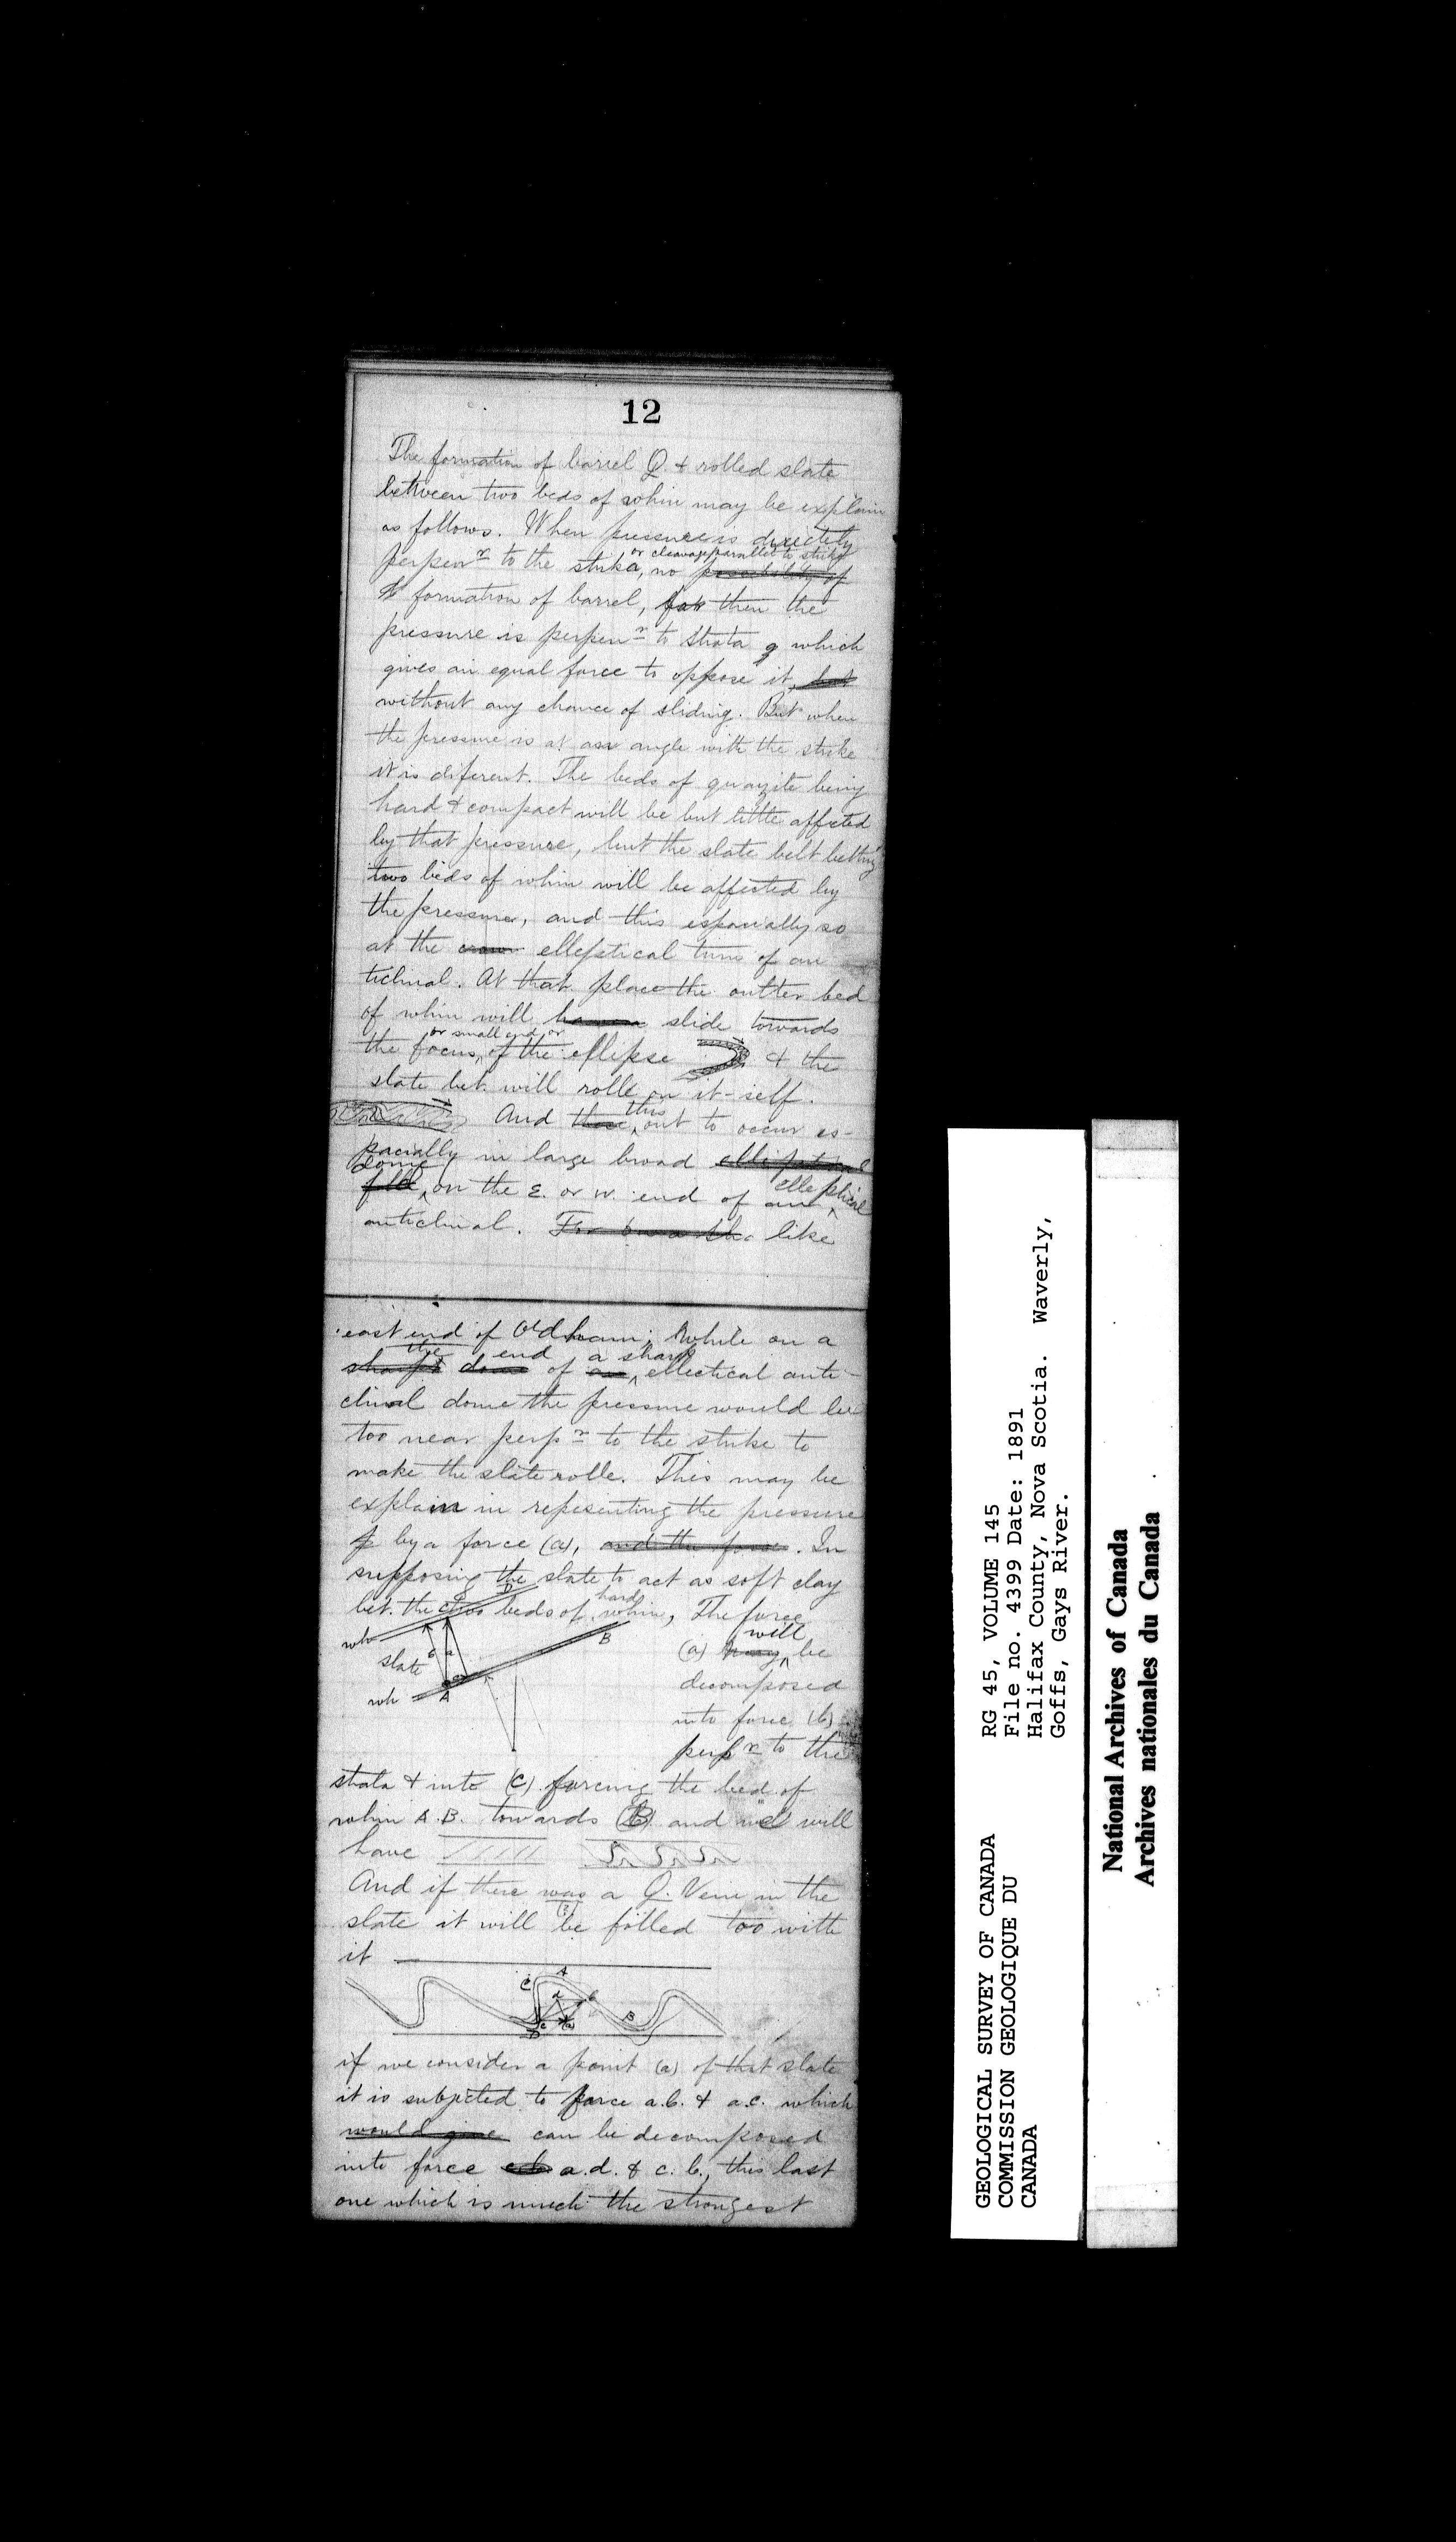 12
The formation of barrel Q. & rolled slate
between two beds of whin may be explain
as follows. When pressure is directely
or cleavage parallel to strike
perpenr to the strike, no possibility of
formation of barrel, for then the
pressure is perpenr to strata which
gives an equal force to oppose it, but
without any chance of sliding. But when
the pressure is at an angle with the strike
it is diferent. The beds of quarzite being
hard & compact will be but little affected
by that pressure, but the slate belt
two beds of whin will be affected by
the pressure, and this espacially so
at the elleptical turn of an
ticlinal. At that place the outter bed
of whin will slide towards
or small end or
the focus, of the ellipse & the
slate bet. will rolle on it-self.
this
And out to occur es-
pacially in large broad elliptical
dome
fold on the E. or W. end of an elleptical
anticlinal. like
east end of Oldham; While on a
the end a sharp
sharp dome of an ellectical anti-
clinal dome the pressure would be
too near perpr to the strike to
make the slate rolle. This may be
explain in repesenting the pressure
by a force (a), and the force. In
supposing the slate to act as soft clay
hard
bet. the two beds of whin, The force
D
wh
slate
b a
B
wh
A
will
(a) may be
decomposed
into force (b)
perpr to the
strata & into (c) forcing the bed of
whin A.B. towards (B) and we will
have
And if there was a Q. Vein in the
(?)
slate it will be folled too with
it
A
C
d
b
B
c
(a)
D
if we consider a point (a) of that slate
it is subjected to force a.b. & a.c. which
would give can be decomposed
into force a.d. & c.b., this last
one which is much the strongest
GEOLOGICAL SURVEY OF CANADA
COMMISSION GEOLOGIQUE DU
CANADA
RG 45, VOLUME 145
File no. 4399 Date: 1891
Halifax County, Nova Scotia. Waverly,
Goffs, Gays River.
National Archives of Canada
Archives nationales du Canada